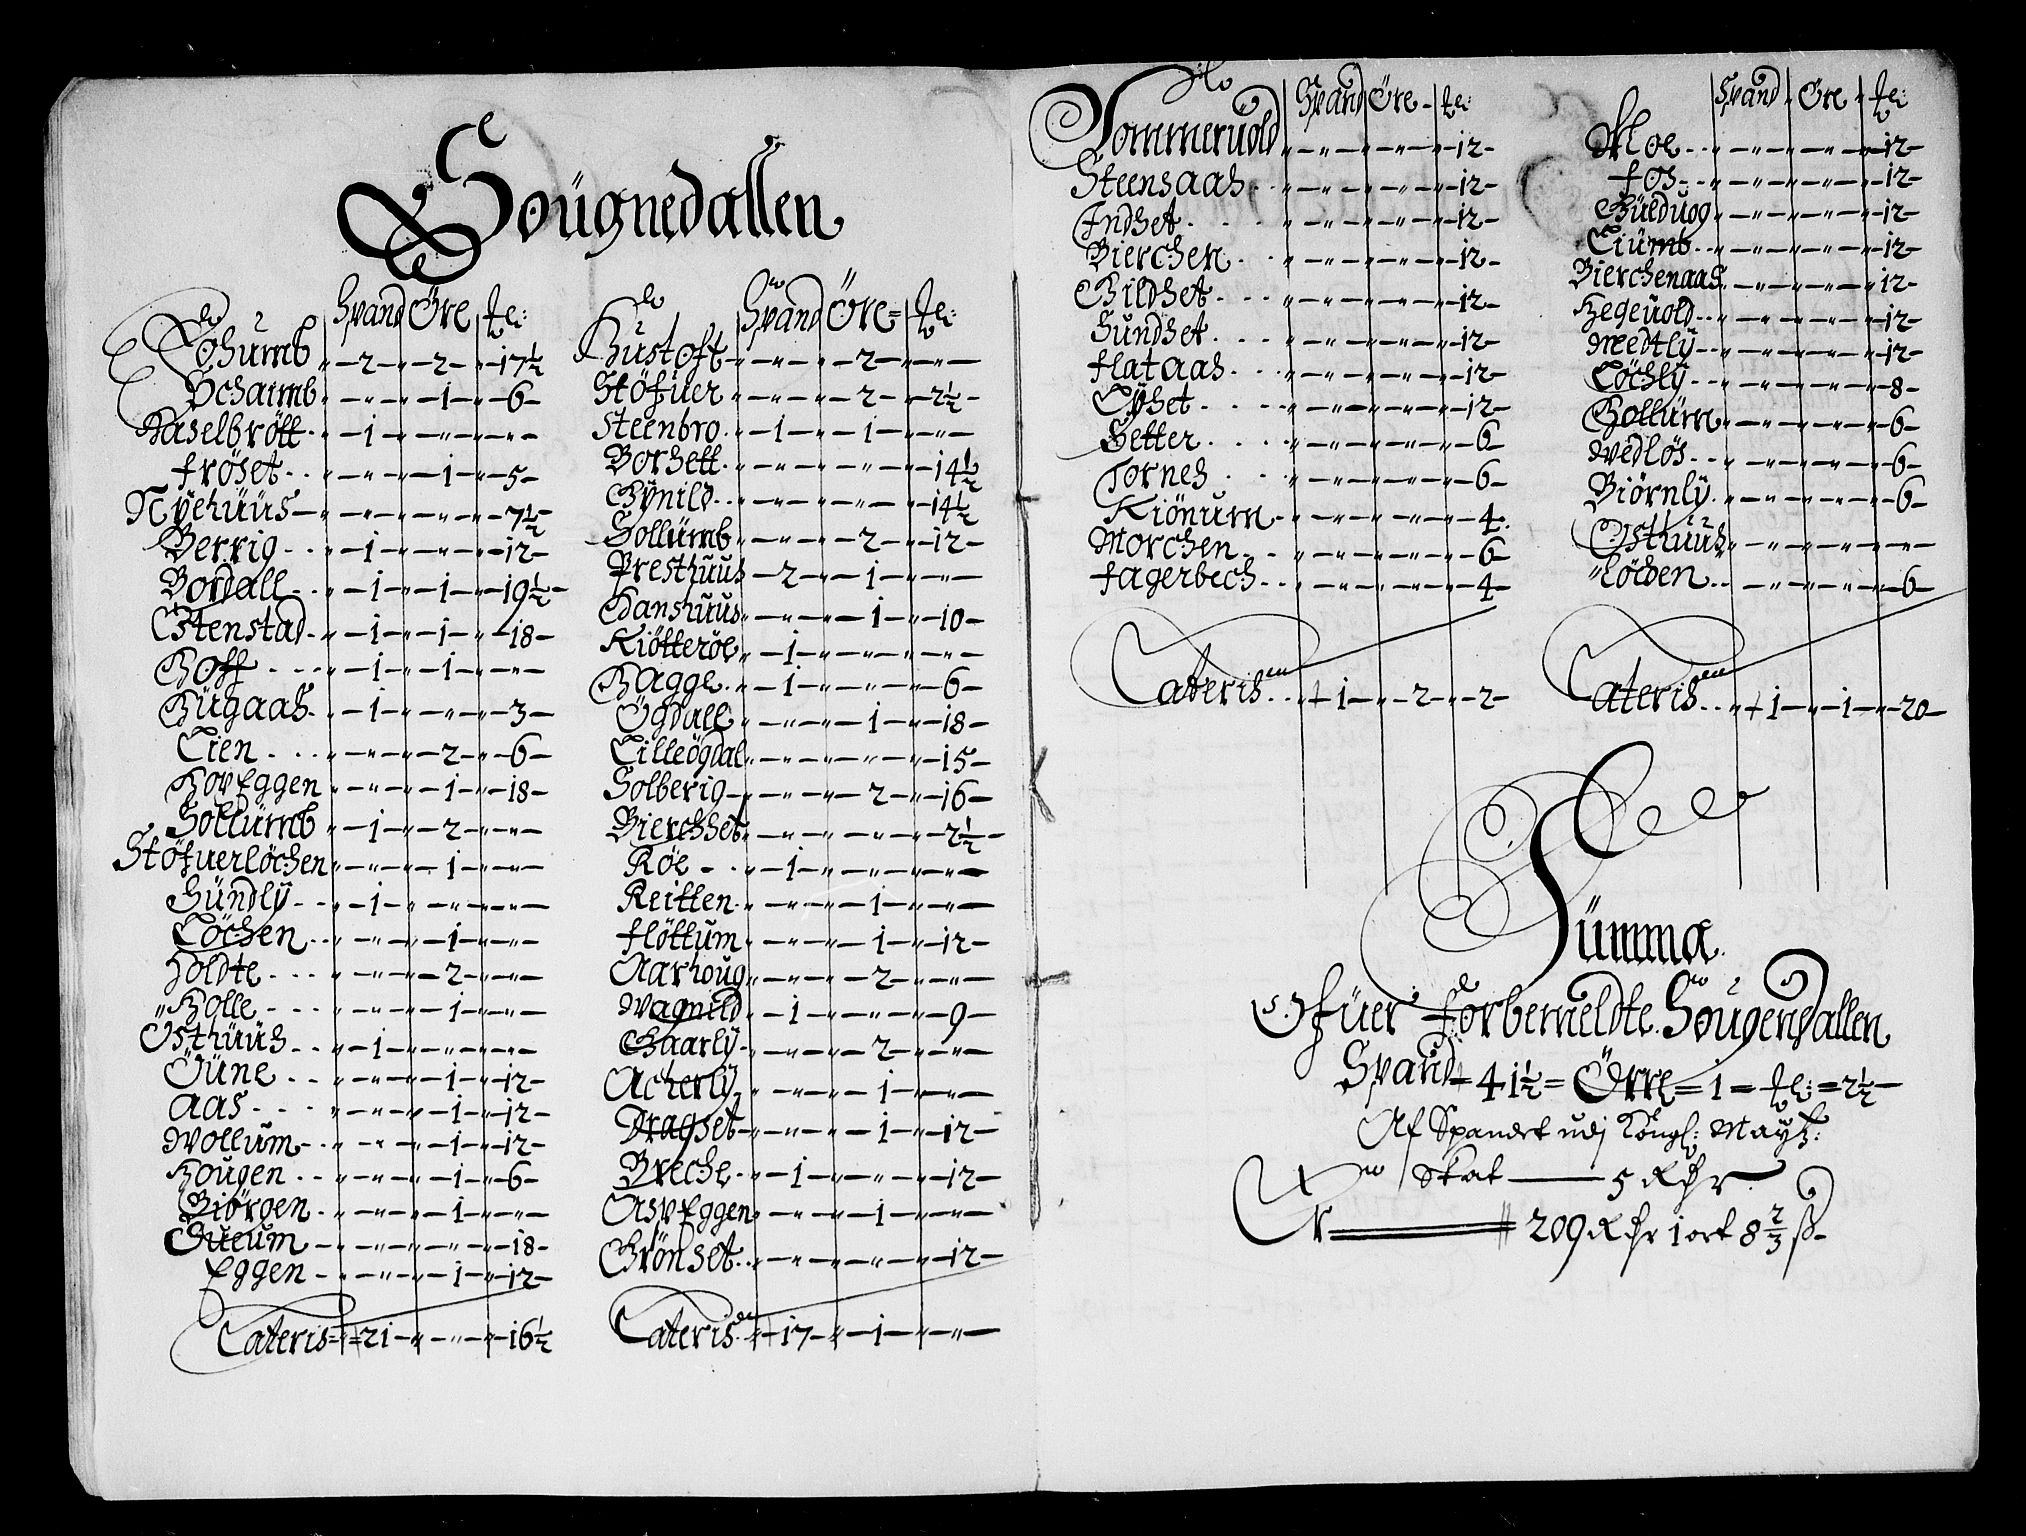 Sougnedallen
Spand Öre
Sohumb 2 2 17½
Schaimb 1 6
Haselbrött 1
fröset 1 5
Nyehuus 7½
Berrig 1 12
Bordall 1 1 19½
Östenstad 1 1 18
Hoff 1 1
Hugaas 1 3
Lien 2 6
Hov Eggen 1 18
Sollumb 1 2
Stöfuerlöchen 1
Sundly 1
Löchen 1
Holdte 2
Holle 1
Östhuus 1
Öune 1 12
aas 1 12
Wollum 1 12
Hougen 1 6
Biörgen 1
Gueum 18
Eggen 1 12
Lateris 21 16½
Spand Öre
Hustoft 2
Stöfuer 2 2½
Steenbro 1 1
Borsett 14½
Gynild 14½
Sollumb 2 12
Presthuus 2 1
Danshuus 1 10
Kiötteröe 1
Bagge 1 6
Ögdall 1 18
Lilleögdal 15
Solberig 2 16
Bierchset 2½
Röe 1
Reitten 1
flöttum 1 12
Aarhoug 2
Wagnild 1 9
Gaarly 2
Acherly 1
Dragset 1 12
Breche 1 12
Asp Eggen 1
Grönset 12
Lateris 17 1
Spand Öre
Sommeruold 12
Steensaas 12
Endset 12
Bierchen 12
Gildset 12
Sundset 12
flataas 12
Lyset 12
Setter 6
Tornes 6
Kiönum 4
Morchen 6
fagerbech 4
Lateris 1 2 2
Spand Öre
Moe 12
fos 12
Gulduog 12
Liumb 12
Bierchenaas 12
Hegeuold 12
Meedtly 12
Löchly 8
Gollum 6
Wedlös 6
Biörnly 6
Östhuus
Löchen 6
Lateris 1 1 20
Summa
Ofuer forbemeldte Sougendallen
Spand 41½ = Örre = 1 = 2½
Af Spandet udj Kongl: Maytz:
Skat 5 Rdr
Er 209 Rdr 1 ort 8⅔ ß